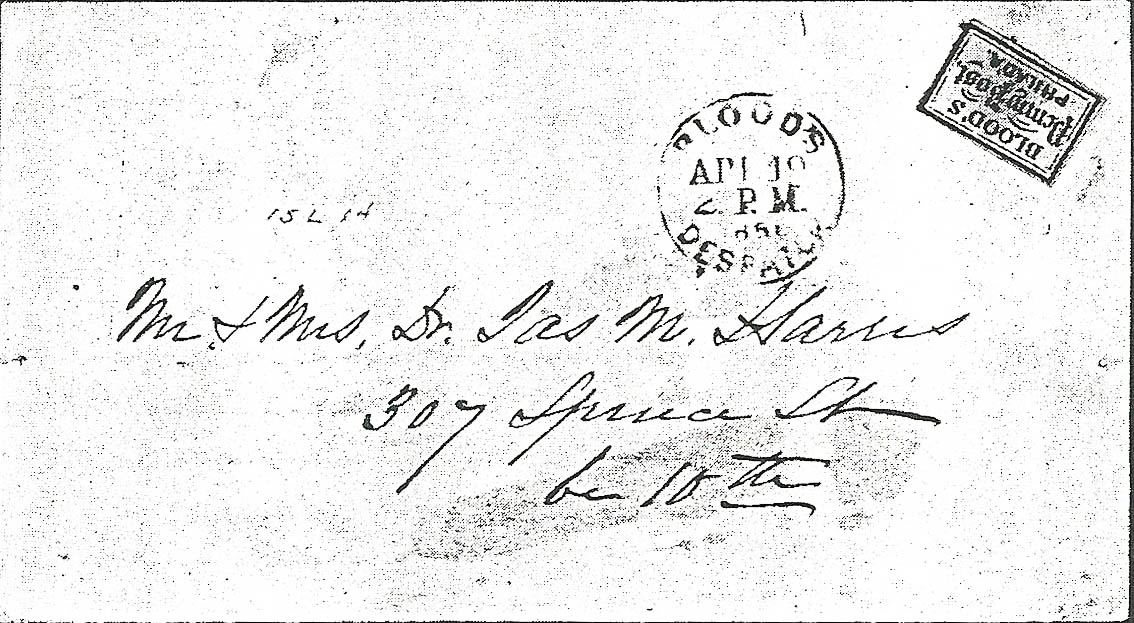 BLOOD'S
Penny Post
PHILADA.
BLOOD'S
P.M.
DESPATCH
15L 14
Mr. & Mrs. Dr. Jas M. Harris
307 Spruce St
be 10th